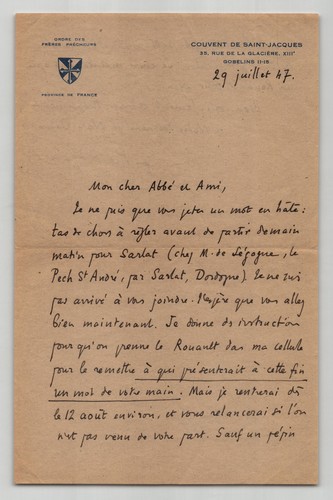 ORDRE DES
FRÈRES PRÊCHEURS
PROVINCE DE FRANCE
COUVENT DE SAINT-JACQUES
35, RUE DE LA GLACIÈRE, XIIIe
GOBELINS 11-15
29 juillet 47.
Mon cher Abbé et Ami,
Je ne puis que vous jeter un mot en hâte :
tas de choses à régler avant de partir demain
matin pour Sarlat (chez M. de Ségogne, le
Pech St André, par Sarlat, Dordogne). Je ne suis
pas arrivé à vous joindre. J'espère que vous allez
bien maintenant. Je donne des instruction
pour qu'on prenne le Rouault dans ma cellule
pour le remettre à qui présenterait à cette fin
un mot de votre main. Mais je rentrerai dès
le 12 août environ, et vous relancerai si l'on
n'est pas venu de votre part. Sauf un pépin